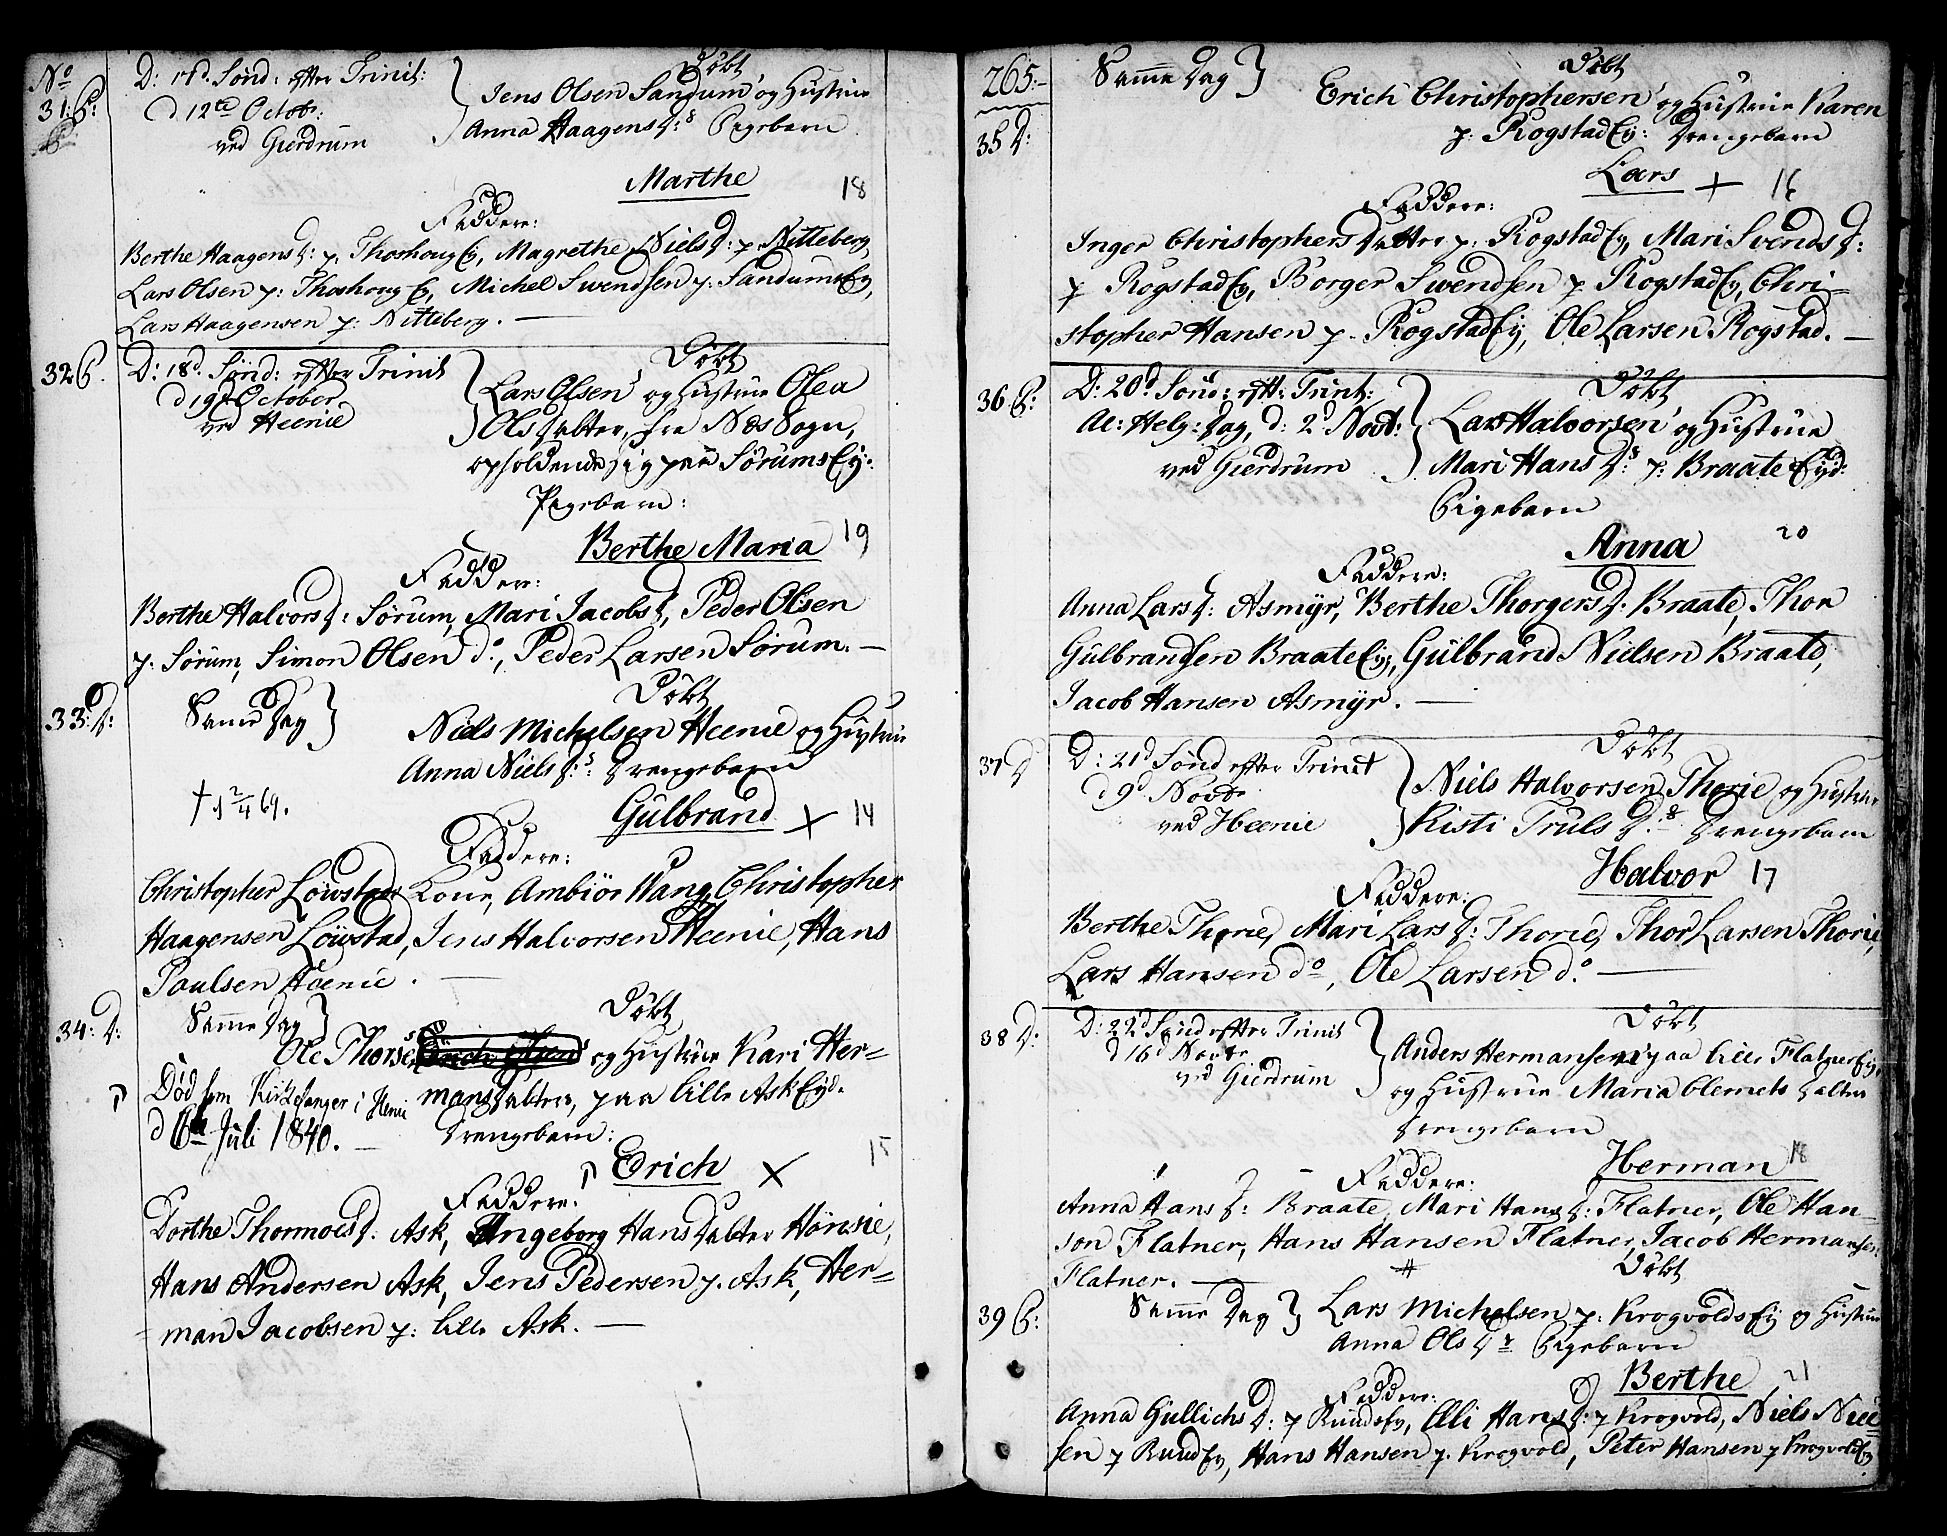 No
31: P:
D: 17d. Sønd: efter Trinit:
d 12te Octob:
ved Gierdrum
Døbt
Jens Olsen Sandum og Hustrue
Anna Haagens D:s Pigebarn
Marthe 18
Faddere:
Berthe Haagens D: p. Thoshoug Ey, Magrethe Niels D: p. Nitteberg,
Lars Olsen p: Thoshoug Ey, Michel Swendsen p: Sandums Ey,
Lars Haagensen p: Nitteberg. —
32 P.
D: 18d. Sønd: efter Trinit
d 19de October
ved Heenie
Døbt
Lars Olsen og Hustrue Olea
Ols Datter, fra Næs Sogn,
opholdende sig paa Sørums Ey:
Pigebarn:
Berthe Maria 19
Faddere:
Berthe Halvors D: Sørum, Mari Jacobs D, Peder Olsen
p: Sørum, Simon Olsen do, Peder Larsen Sørum. —
33: D:
Samme Dag
Døbt
Niels Michelsen Heenie og Hustrue
Anna Niels D:s: Drengebarn
† d 2/4 69.
Gulbrand × 14
Faddere:
Christopher Løwstads Kone, Ambiør Wang, Christopher
Haagensen Løwstad, Jens Halvorsen Heenie, Hans
Paulsen Heenie. —
34: D:
Samme Dag
Døbt
Ole Thorsen og Hustrue Kari Her=
mans Datter, paa lille Ask Eyd.
Drengebarn:
Død som Kirkesanger i Heni
d 6te Juli 1840. —
Erich × 15
Faddere:
Dorthe Thormoes D: Ask, Ingeborg Hans Datter Hønsie,
Hans Andersen Ask, Jens Pedersen p. Ask, Her=
man Jacobsen p: lille Ask. —
265:-
35 D:
Samme Dag
Døbt
Erich Christophersen og Hustrue Karen
p: Rogstad Ey: Drengebarn
Lars + 16
Faddere:
Inger Christophers Datter p: Rogstad Ey, Mari Svends D:
p Rogstad Ey, Borger Swendsen p Rogstad Ey, Chri=
stopher Hansen p. Rogstad Ey, Ole Larsen Rogstad. —
36 P:
D: 20d Sønd: eft: Trinit:
Al: Helg: Dag, d: 2d Novb:
ved Gierdrum
Døbt
Lars Halvorsen og Hustrue
Mari Hans D:s p: Braate Eyd:
Pigebarn
Anna 20
Faddere:
Anna Lars D: Asmyr, Berthe Thorgers D. Braate, Thon
Gulbrandsen Braate Ey, Gulbrand Nielsen Braate,
Jacob Hansen Asmyr. —
37 D
D: 21d Sønd efter Trinit
d 9d Novbr
ved Heenie
Døbt
Niels Halvorsen Thorie og Hustrue
Kisti Truls D:s Drengebarn
Halvor 17
Faddere:
Berthe Thorie, Mari Lars D: Thorie, Thor Larsen Thorie,
Lars Hansen do, Ole Larsen do. —
38 D:
D: 22d Sønd efter Trinit
d 16d Novbr
ved Gierdrum
Døbt
Anders Hermansen paa lille Flatner Ey,
og Hustrue Maria Clemets Datter
Drengebarn
Herman 18
Faddere:
Anna Hans D: Braate, Mari Hans D: Flatner, Ole Han=
sen Flatner, Hans Hansen Flatner, Jacob Hermansen
Flatner. —
39 P:
Samme Dag
Døbt
Lars Michelsen p: Krogvolds Ey og Hustrue
Anna Ols Dr Pigebarn
Berthe 21
Faddere:
Anna Gullichs D: p Rundey, Elli Hans D: p Krogvold, Niels Niel=
sen p Rund Ey, Hans Hansen p. Krogvold, Peter Hansen p Krogvold Ey.